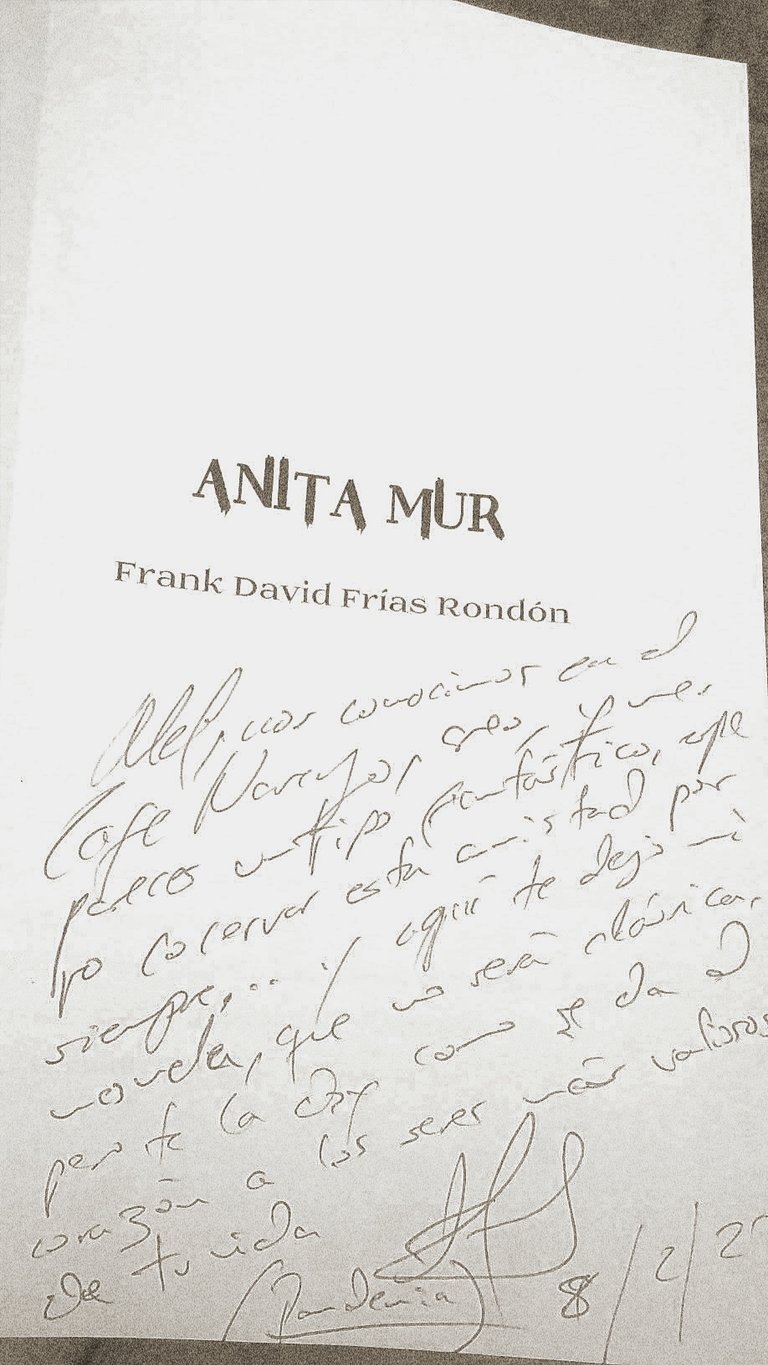 ANITA MUR
Frank David Frías Rondón
nos conocimos en el
Cafe creo, y me
pareces un tipo fantástico, espe
ro conservar esta amistad por
siempre... Y aquí te dejo mi
novela, que no será clásica,
pero te la doy como se da el
corazón a los seres más valiosos
de tu vida
(Pandemia) 8/2/2